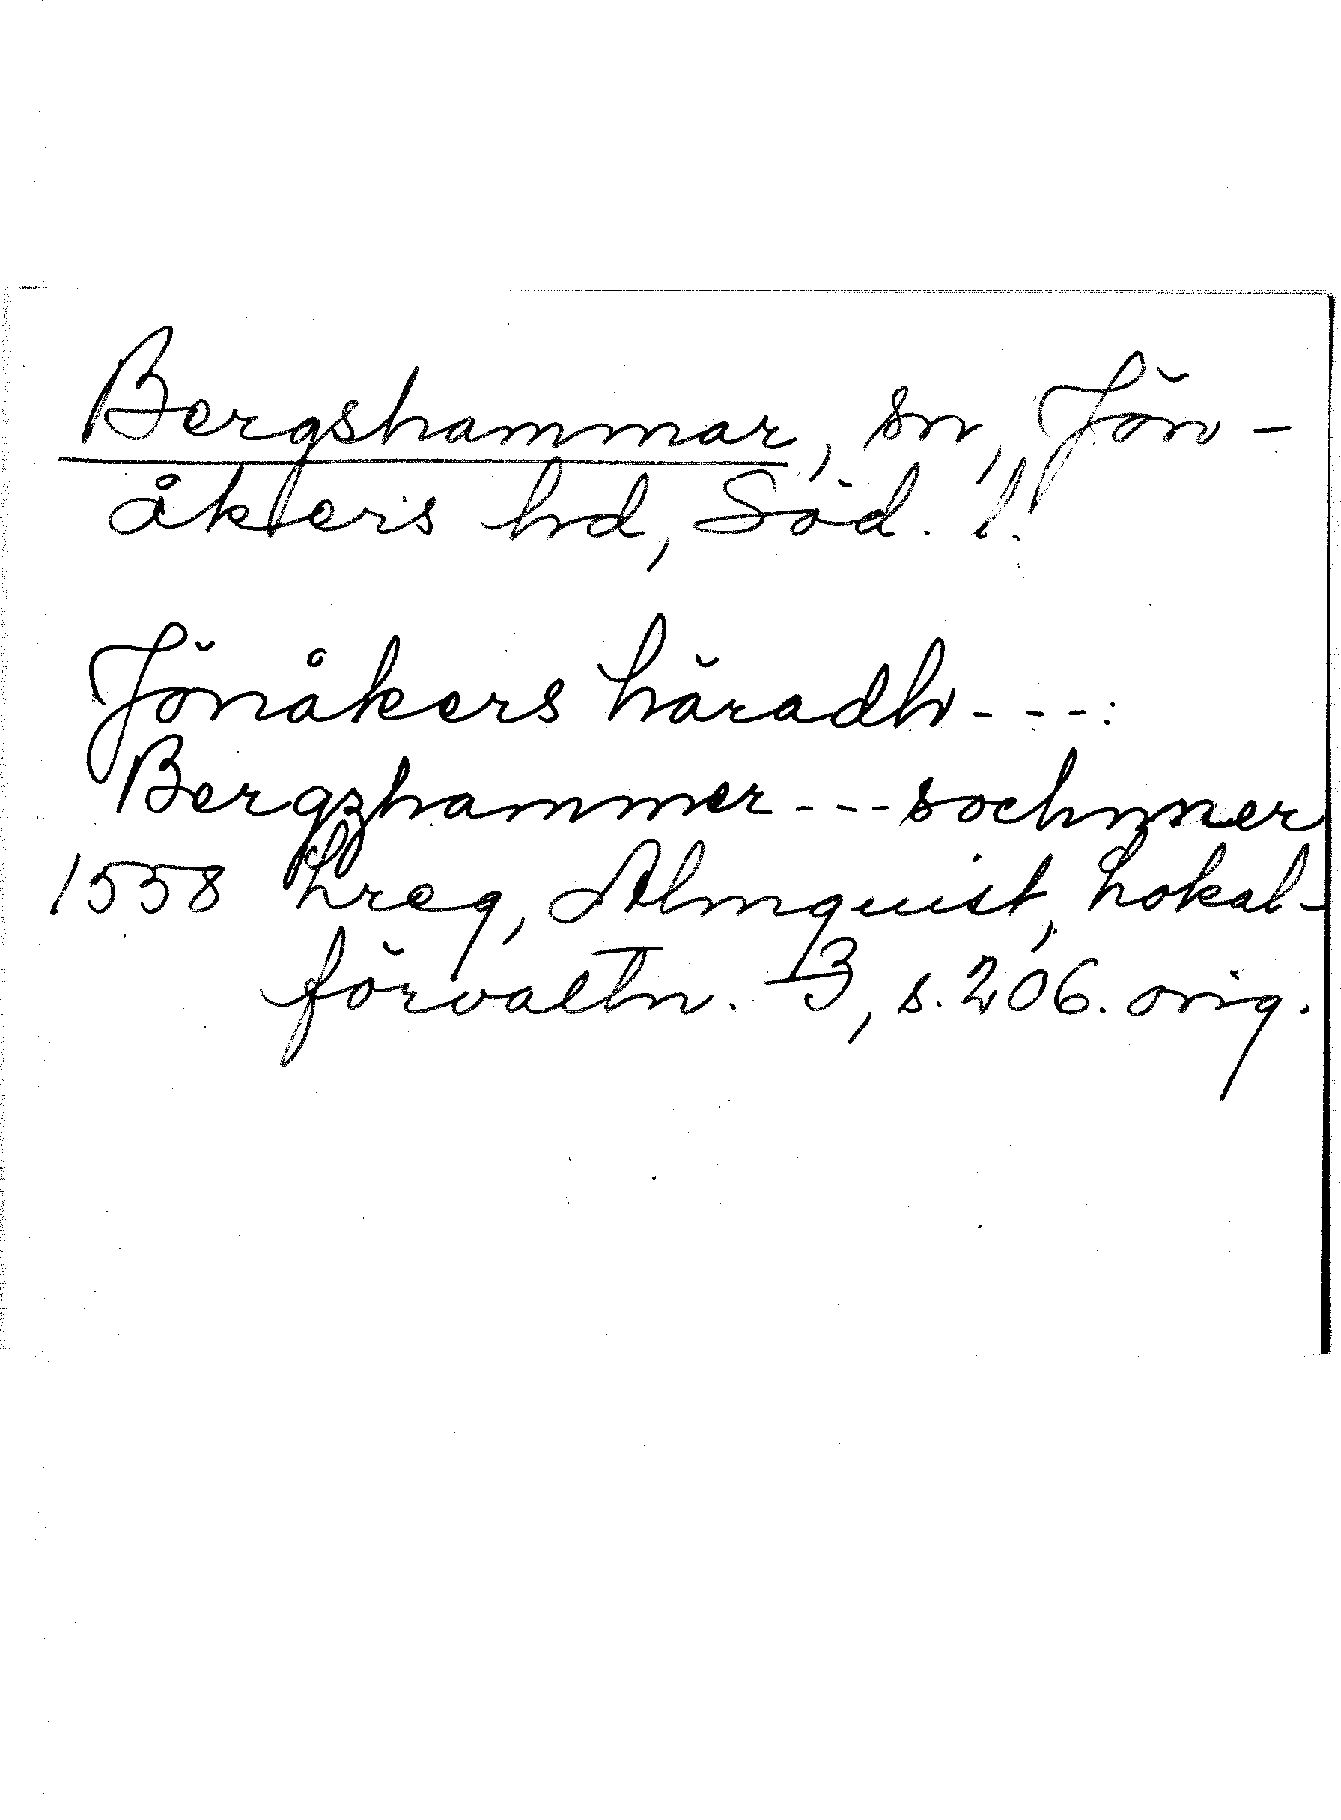 Bergshammar, sn, Jön-
åkers hd, Söd. l.
Jönåkers häradh ---:
Bergzhammer --- sochnner
1558 Lreg, Almquist, Lokal-
förvaltn. 3, s. 206. orig.